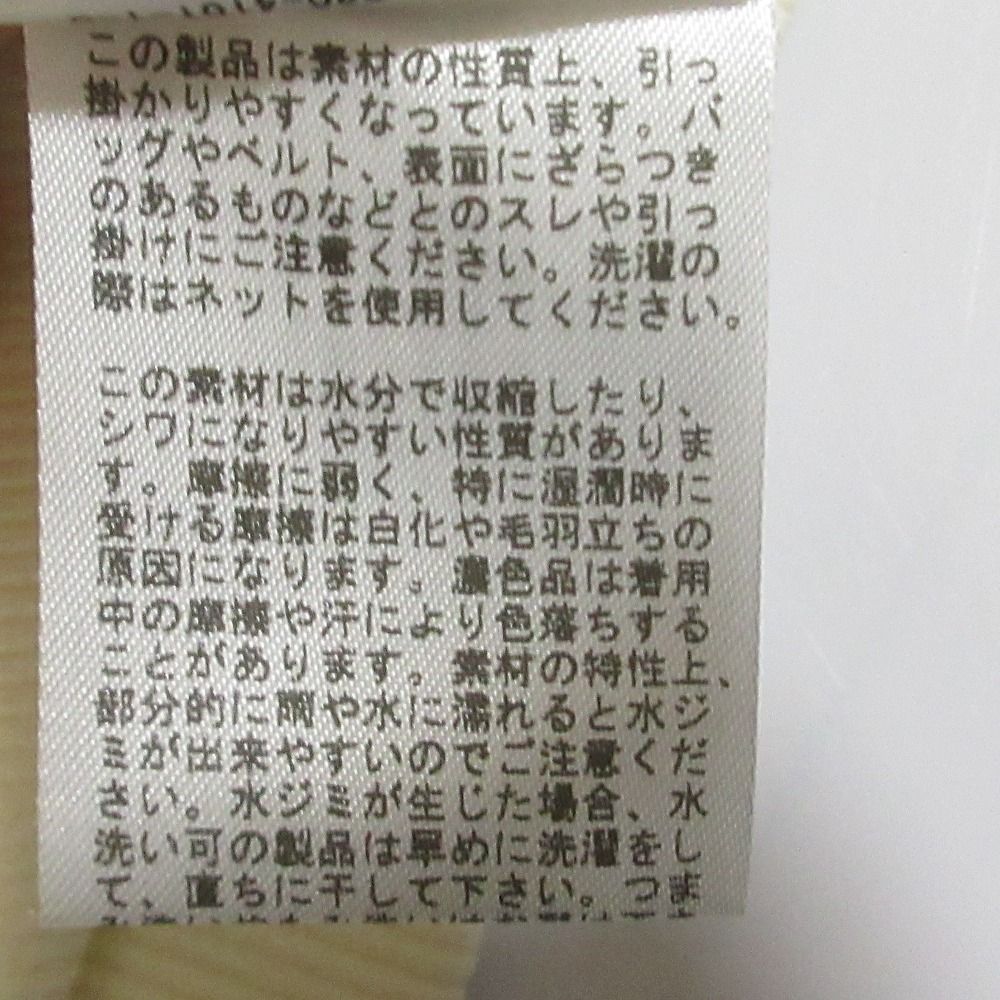 この製品は素材の性質上、引っ
掛かりやすくなっています。バ
ッグやベルト、表面にざらつき
のあるものなどとのスレや引っ
掛けにご注意ください。洗濯の
際はネットを使用してください。
この素材は水分で収縮したり、
シワになりやすい性質がありま
す。摩擦に弱く、特に湿潤時に
受ける摩擦は白化や毛羽立ちの
原因になります。濃色品は着用
中の摩擦や汗により色落ちする
ことがあります。素材の特性上、
部分的に雨や水に濡れると水ジ
ミが出来やすいのでご注意くだ
さい。水ジミが生じた場合、水
洗い可の製品は早めに洗濯をし
て、直ちに干して下さい。つま